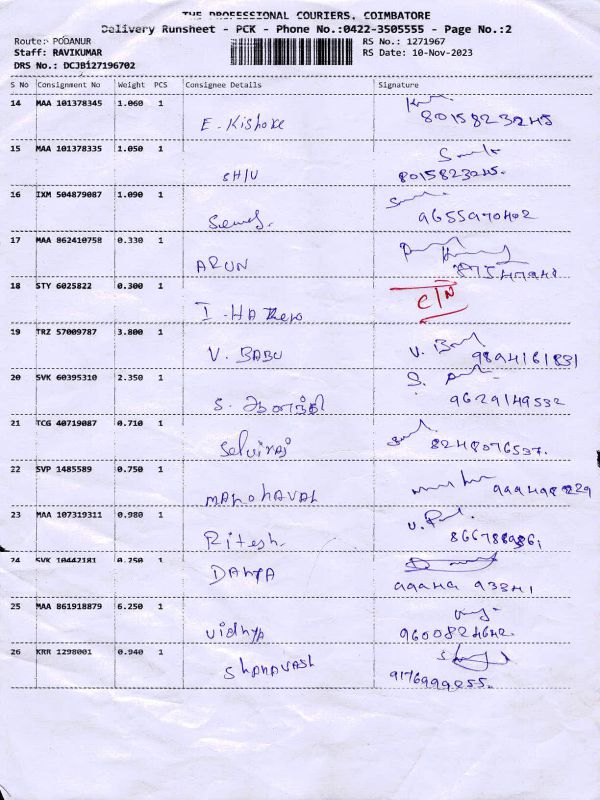 THE PROFESSIONAL COURIERS, COIMBATORE
Delivery Runsheet - PCK - Phone No.:0422-3505555 - Page No.:2
Route: PODANUR RS No.: 1271967
Staff: RAVIKUMAR RS Date: 10-Nov-2023
DRS No.: DCJB127196702
S No Consignment No Weight PCS Consignee Details Signature
14 MAA 101378345 1.060 1
E. Kishore 8015823245
15 MAA 101378335 1.050 1
SHIV 8015823245.
16 IXM 504879087 1.090 1
9655970402
17 MAA 862410758 0.330 1
ARUN
18 STY 6025822 0.300 1
C/N
19 TRZ 57009787 3.800 1
V. BABU 9894161831
20 SVK 60395310 2.350 1
S. ஆனந்தி 9629149532
21 TCG 40719087 0.710 1
Selviraj 8248076537.
22 SVP 1485589 0.750 1
23 MAA 107319311 0.980 1
Ritesh.
24 SVK 10442181 0.250 1
DAHYA
25 MAA 861918879 6.250 1
Vidhya 9600824642.
26 KRR 1298001 0.940 1
SHAHAVASH 9176999255.